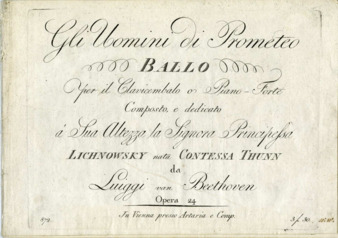 Gli Uomini di Prometeo
BALLO
per il Clavicembalo o Piano-Forte
Composto, e dedicato
á Sua Altezza la Signora Principessa
LICHNOWSKY nata CONTESSA THUNN
da
Luiggi van Beethoven
Opera 24
In Vienna presso Artaria e Comp.
872.